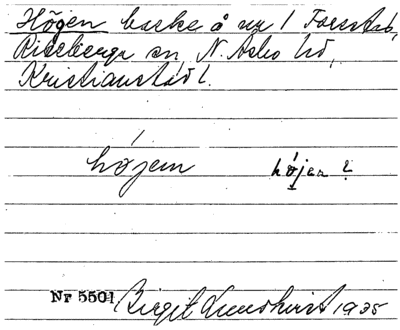 Högen backe å nr 1 Forestad,
Riseberga sn, N. Åsbo hd,
Kristianstad l.
højem højen ?
Nr 5501 Birgit Lundkvist 1935